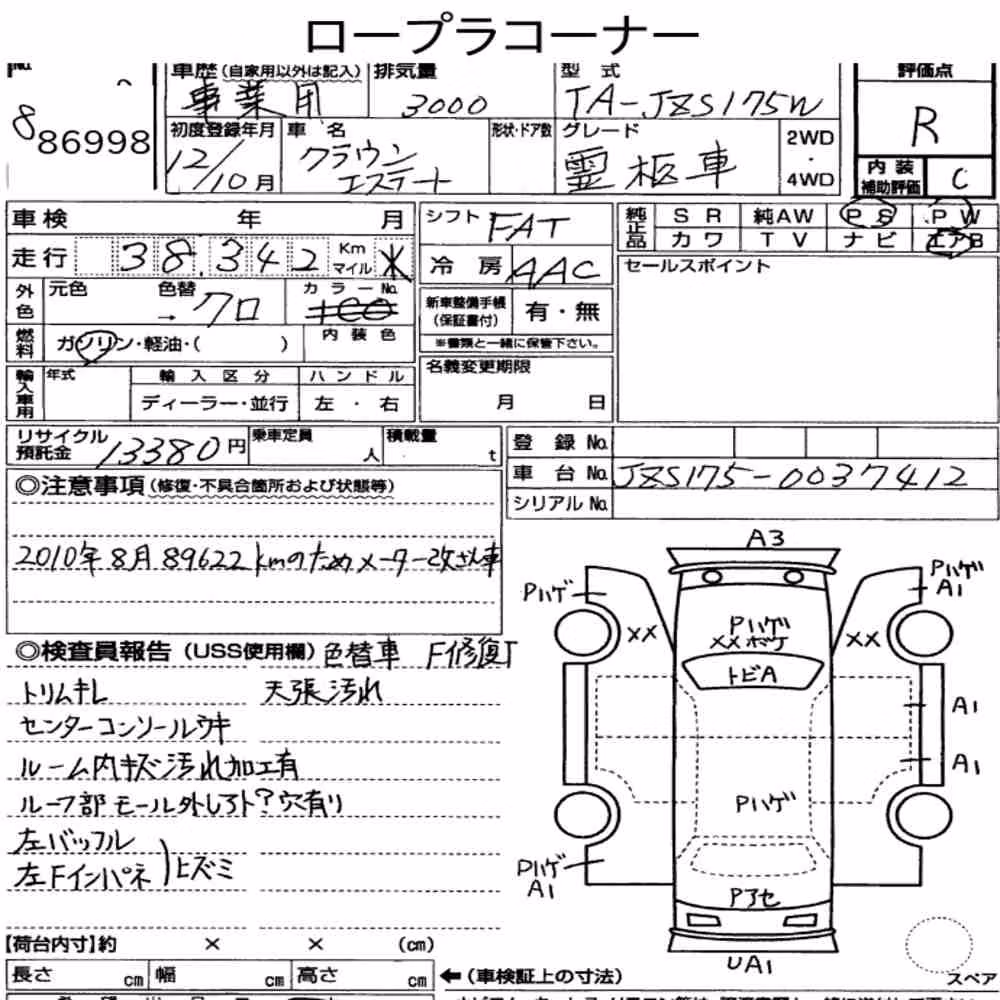 ロープラコーナー
No.
886998
車歴(自家用以外は記入) 排気量 型式 評価点
事業用 3000 TA-JZS175W R
初度登録年月 車名 形状・ドア数 グレード 2WD・4WD
12/10月 クラウンエステート 霊柩車
内装補助評価 C
車検 年 月
シフト FAT
純正品 SR 純AW PS PW
カワ TV ナビ エアB
走行 38,342 Km マイル
冷房 AAC
セールスポイント
外色 元色 色替 → クロ カラーNo.
新車整備手帳(保証書付) 有・無
※書類と一緒に保管下さい。
燃料 ガソリン・軽油・( ) 内装色
名義変更期限
月 日
輸入車用 年式 輸入区分 ハンドル
ディーラー・並行 左・右
リサイクル預託金 13380円 乗車定員 人 積載量 t
登録No.
車台No. JZS175-0037412
シリアルNo.
◎注意事項(修復・不具合箇所および状態等)
2010年8月 89622kmのためメーター改ざん車
◎検査員報告(USS使用欄) 色替車 F修復了
トリムキレ 天張汚れ
センターコンソールウキ
ルーム内キズ汚れ加工有
ルーフ部モール外しろト?穴有り
左バッフル
左Fインパネ )ヒズミ
A3
Pハゲ
Pハゲ
A1
××
Pハゲ
××ボケ
××
トビA
A1
A1
Pハゲ
Pハゲ
A1
Pアセ
UA1
スペア
【荷台内寸】約 × × (cm)
長さ cm 幅 cm 高さ cm ←(車検証上の寸法)